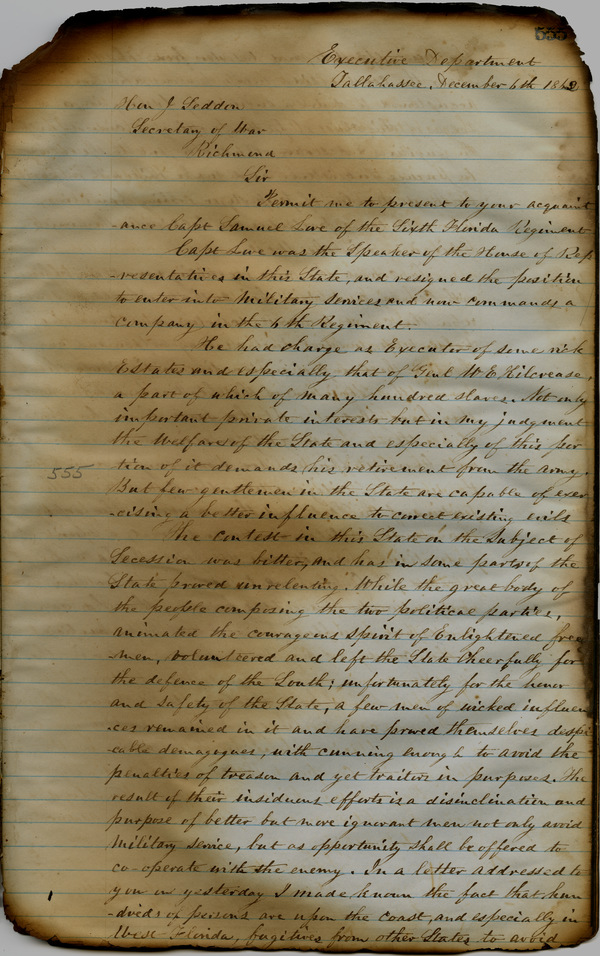 555
Executive Department
Tallahassee, December 6th 1862
Hon J Seddon
Secretary of War
Richmond
Sir
Permit me to present to your acquaint
-ance Capt Samuel Love of the Sixth Florida Regiment
Capt Love was the Speaker of the House of Rep
-resentatives in this State, and resigned the position
to enter into Military services and now commands a
company in the 6th Regiment.
He had charge as Executor of some rich
Estates and especially that of Genl W E Kilcrease,
a part of which of many hundred slaves. Not only
important private interests but in my judgment
the welfare of the State and especially of this por
tion of it demands his retirement from the army.
555
But few gentlemen in the State are capable of exer
-cising a better influence to correct existing evils
The contest in this State on the Subject of
Secession was bitter, and has in some parts of the
State proved unrelenting. While the great body of
the people composing the two political parties,
animated the courageous spirit of Enlightened free
-men, volunteered and left the State Cheerfully for
the defence of the South; unfortunately for the honor
and safety of the State, a few men of wicked influen
-ces remained in it and have proved themselves despi
-cable demagogues; with cunning enough to avoid the
penalties of treason and yet traitors in purposes. The
result of their insiduous efforts is a disinclination and
purpose of better but more ignorant men not only avoid
Military service, but as opportunity shall be offered to
co-operate with the enemy. In a letter addressed to
you on yesterday I made known the fact that hun
-dreds of persons are upon the coast, and especially in
West Florida, fugitives from other States to avoid